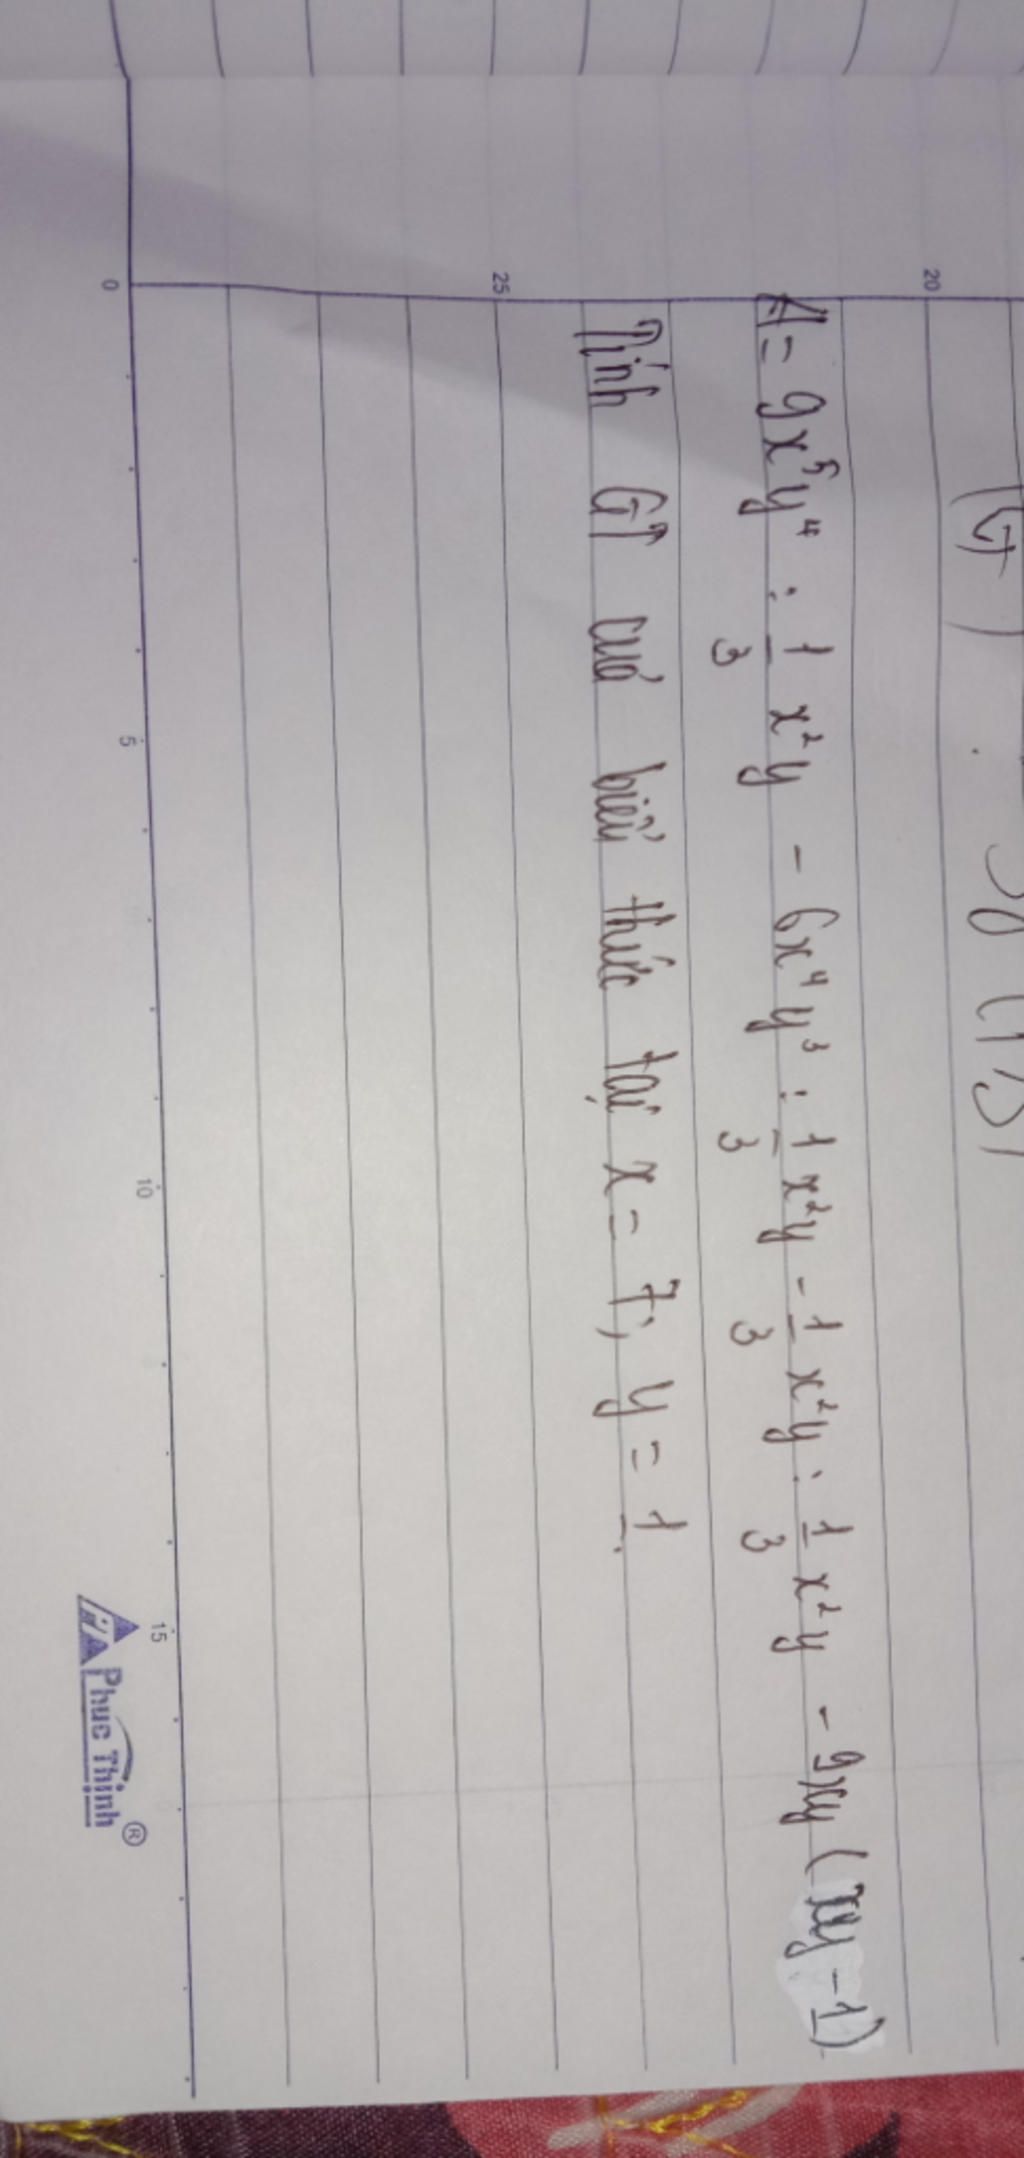 20
A = 9x⁵y⁴ : 1/3 x²y - 6x⁴y³ : 1/3 x²y - 1/3 x²y : 1/3 x²y - 9xy (xy - 1)
Tính GT của biểu thức tại x = 7; y = 1.
25
0 5 10 15
Phuc Thinh ®